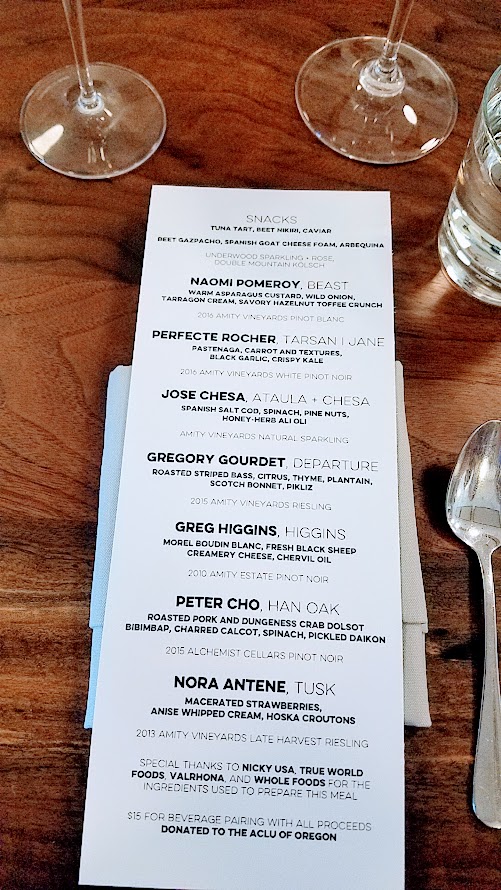 SNACKS
TUNA TART, BEET NIKIRI, CAVIAR
BEET GAZPACHO, SPANISH GOAT CHEESE FOAM, ARBEQUINA
UNDERWOOD SPARKLING + ROSE,
DOUBLE MOUNTAIN KOLSCH
NAOMI POMEROY, BEAST
WARM ASPARAGUS CUSTARD, WILD ONION,
TARRAGON CREAM, SAVORY HAZELNUT TOFFEE CRUNCH
2016 AMITY VINEYARDS PINOT BLANC
PERFECTE ROCHER, TARSAN I JANE
PASTENAGA, CARROT AND TEXTURES,
BLACK GARLIC, CRISPY KALE
2016 AMITY VINEYARDS WHITE PINOT NOIR
JOSE CHESA, ATAULA + CHESA
SPANISH SALT COD, SPINACH, PINE NUTS,
HONEY-HERB ALI OLI
AMITY VINEYARDS NATURAL SPARKLING
GREGORY GOURDET, DEPARTURE
ROASTED STRIPED BASS, CITRUS, THYME, PLANTAIN,
SCOTCH BONNET, PIKLIZ
2015 AMITY VINEYARDS RIESLING
GREG HIGGINS, HIGGINS
MOREL BOUDIN BLANC, FRESH BLACK SHEEP
CREAMERY CHEESE, CHERVIL OIL
2010 AMITY ESTATE PINOT NOIR
PETER CHO, HAN OAK
ROASTED PORK AND DUNGENESS CRAB DOLSOT
BIBIMBAP, CHARRED CALCOT, SPINACH, PICKLED DAIKON
2015 ALCHEMIST CELLARS PINOT NOIR
NORA ANTENE, TUSK
MACERATED STRAWBERRIES,
ANISE WHIPPED CREAM, HOSKA CROUTONS
2013 AMITY VINEYARDS LATE HARVEST RIESLING
SPECIAL THANKS TO NICKY USA, TRUE WORLD
FOODS, VALRHONA, AND WHOLE FOODS FOR THE
INGREDIENTS USED TO PREPARE THIS MEAL
$15 FOR BEVERAGE PAIRING WITH ALL PROCEEDS
DONATED TO THE ACLU OF OREGON